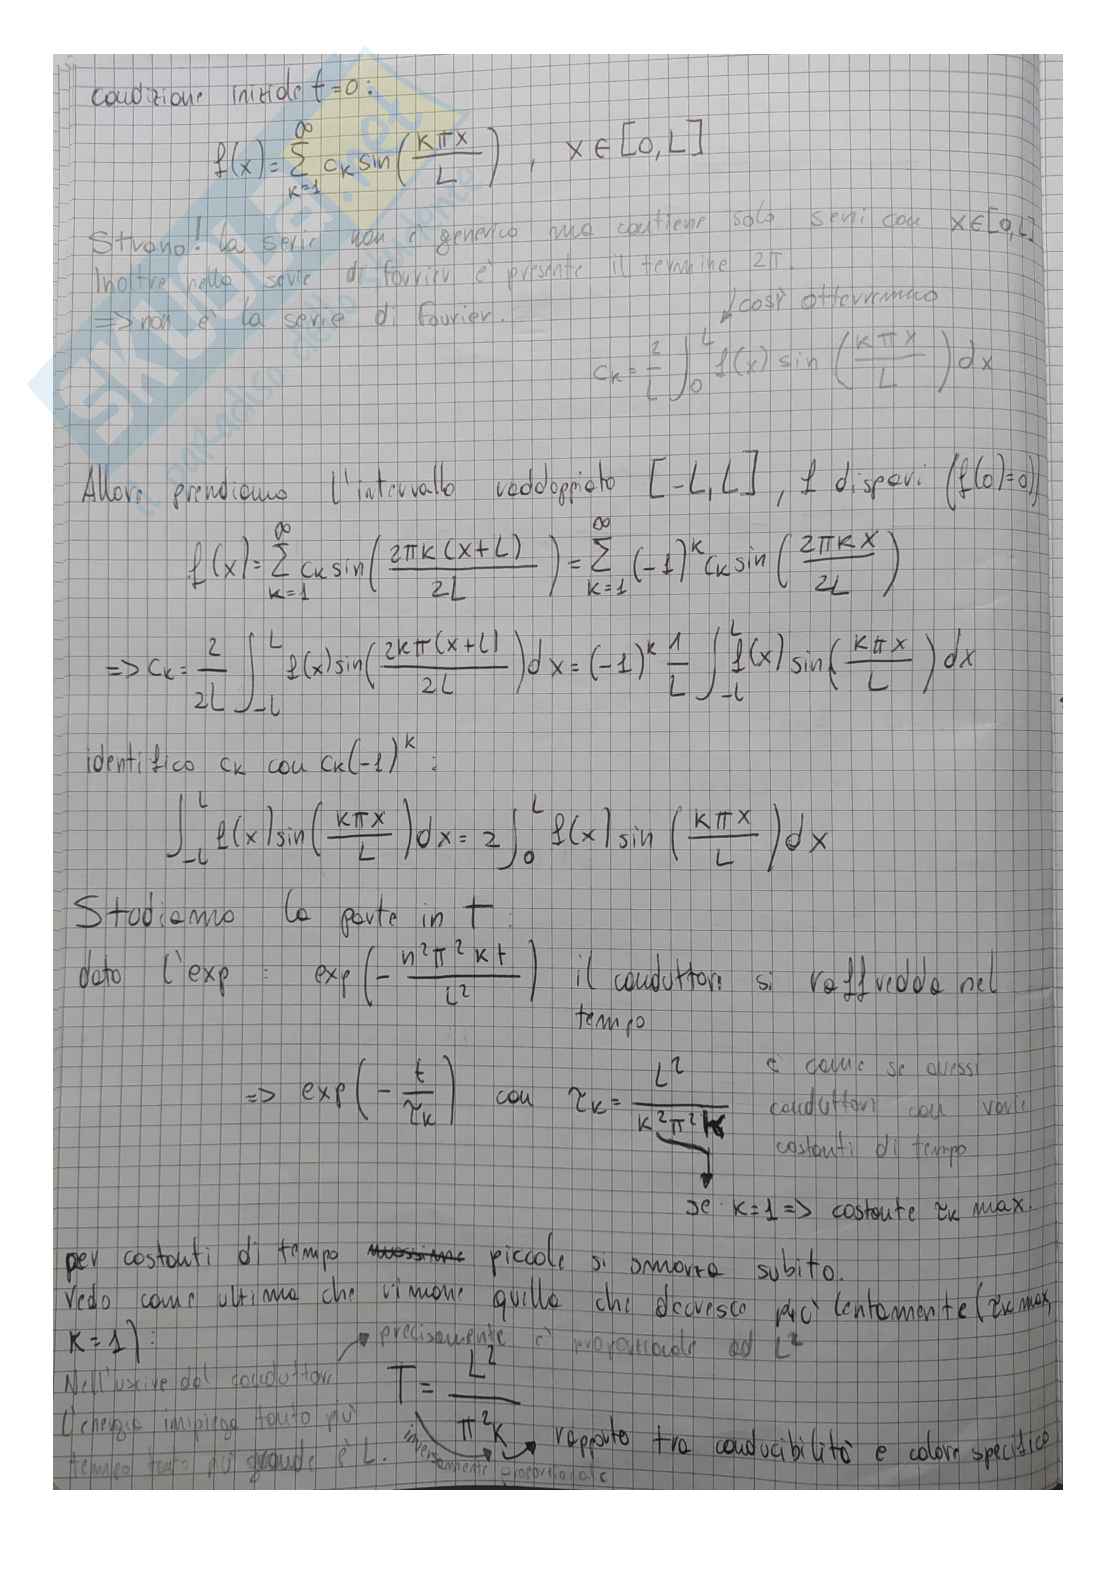 condizione iniziale t=0:
f(x)= ∑_{k=1}^{∞} c_k sin(kπx/L) , x∈[0,L]
Strano! la serie non è generica ma contiene solo seni con x∈[0,L]
Inoltre nella serie di fourier è presente il termine 2π.
=> non è la serie di fourier.
↙così otterremmo
c_k = 2/L ∫_0^L f(x) sin (kπx/L) dx
Allora prendiamo l'intervallo raddoppiato [-L,L], f dispari (f(0)=0)
f(x)= ∑_{k=1}^{∞} c_k sin(2πk(x+L)/2L) = ∑_{k=1}^{∞} (-1)^k c_k sin(2πkx/2L)
=> c_k = 2/2L ∫_{-L}^{L} f(x) sin(2kπ(x+L)/2L) dx = (-1)^k 1/L ∫_{-L}^{L} f(x) sin(kπx/L) dx
identifico c_k con c_k(-1)^k :
∫_{-L}^{L} f(x) sin(kπx/L) dx = 2 ∫_0^L f(x) sin (kπx/L) dx
Studiamo la parte in t:
dato l'exp : exp(- n²π²kt/L²) il conduttore si raffredda nel
tempo
=> exp(- t/τ_k) con τ_k = L²/k²π²k
è come se avessi
conduttori con varie
costanti di tempo
se k=1 => costante τ_k max.
per costanti di tempo piccole si smorza subito.
Vedo come ultima che rimane quella che decresce più lentamente (τ_k max,
k=1):
precisamente è proporzionale ad L²
Nell'uscire dal conduttore
l'energia impiega tanto più
tempo tanto più grande è L.
T = L²/π²k
inversamente proporzionale
rapporto tra conducibilità e calore specifico
SKUOLA.net